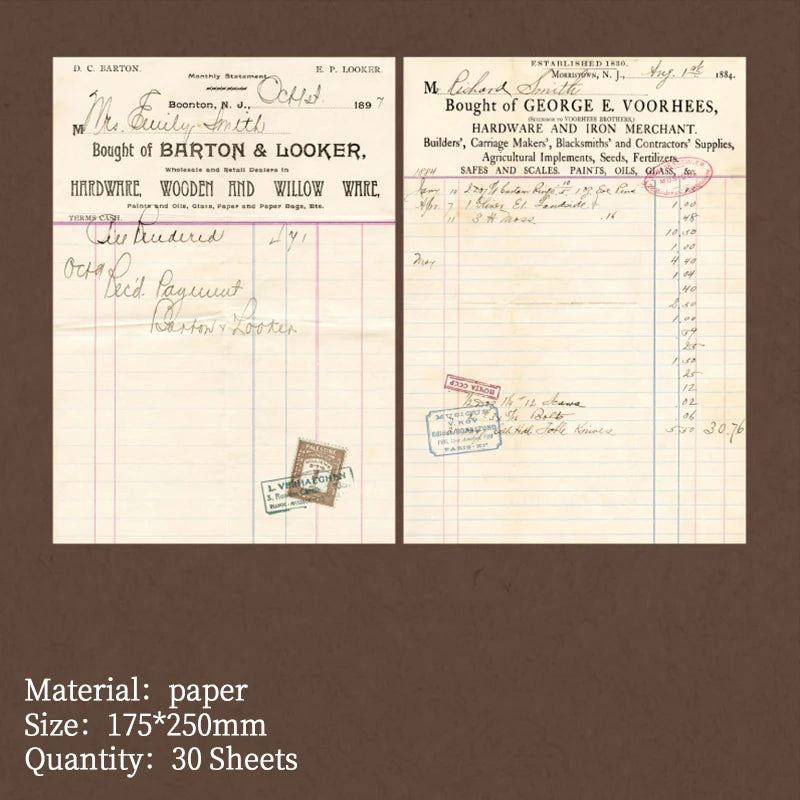 D. C. BARTON.
E. P. LOOKER.
Monthly Statement
Oct 1st
Boonton, N. J., 1897
M Mrs. Emily Smith
Bought of BARTON & LOOKER,
Wholesale and Retail Dealers in
HARDWARE, WOODEN AND WILLOW WARE,
Paints and Oils, Glass, Paper and Paper Bags, Etc.
TERMS CASH.
Rendered
Oct 9
Rec'd. Payment
Barton & Looker
PALESTINE
L. VERHAEGHEN
ESTABLISHED 1830.
Morristown, N. J., Aug. 1st 1884.
M Richard Smith
Bought of GEORGE E. VOORHEES,
(SUCCESSOR TO VOORHEES BROTHERS,)
HARDWARE AND IRON MERCHANT.
Builders', Carriage Makers', Blacksmiths' and Contractors' Supplies,
Agricultural Implements, Seeds, Fertilizers.
SAFES AND SCALES. PAINTS, OILS, GLASS, &c.
1884
Apr 7 1 1.00
11 3 .16 48
10.50
1.00
May 4.40
1.04
40
2.50
1.00
25
1.50
25
12
ПОЧТА СССР
02
Bolts 06
Table Knives 5.50 30.76
PARIS
Material: paper
Size: 175*250mm
Quantity: 30 Sheets